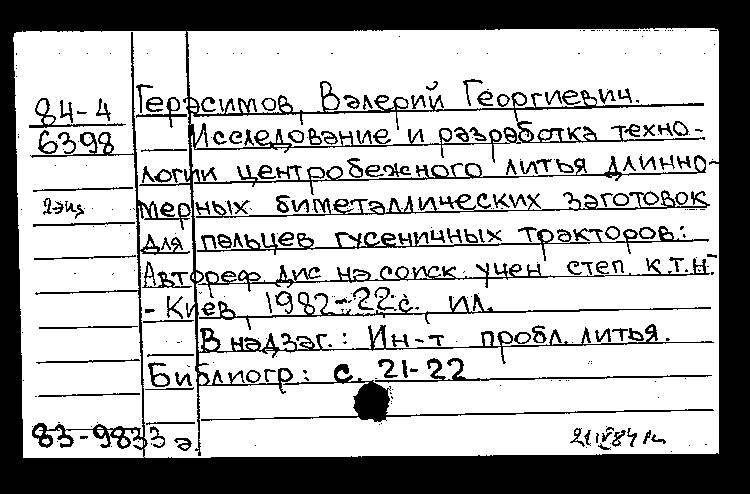 84-4
6398
2экз
Герасимов, Валерий Георгиевич.
Исследование и разработка техно-
логии центробежного литья длинно-
мерных биметаллических заготовок
для пальцев гусеничных тракторов:
Автореф. дис на соиск. учен степ. к.т.н.
- Киев, 1982.-22 с., ил.
В надзаг.: Ин-т пробл. литья.
Библиогр: с. 21-22
83-9833 а.